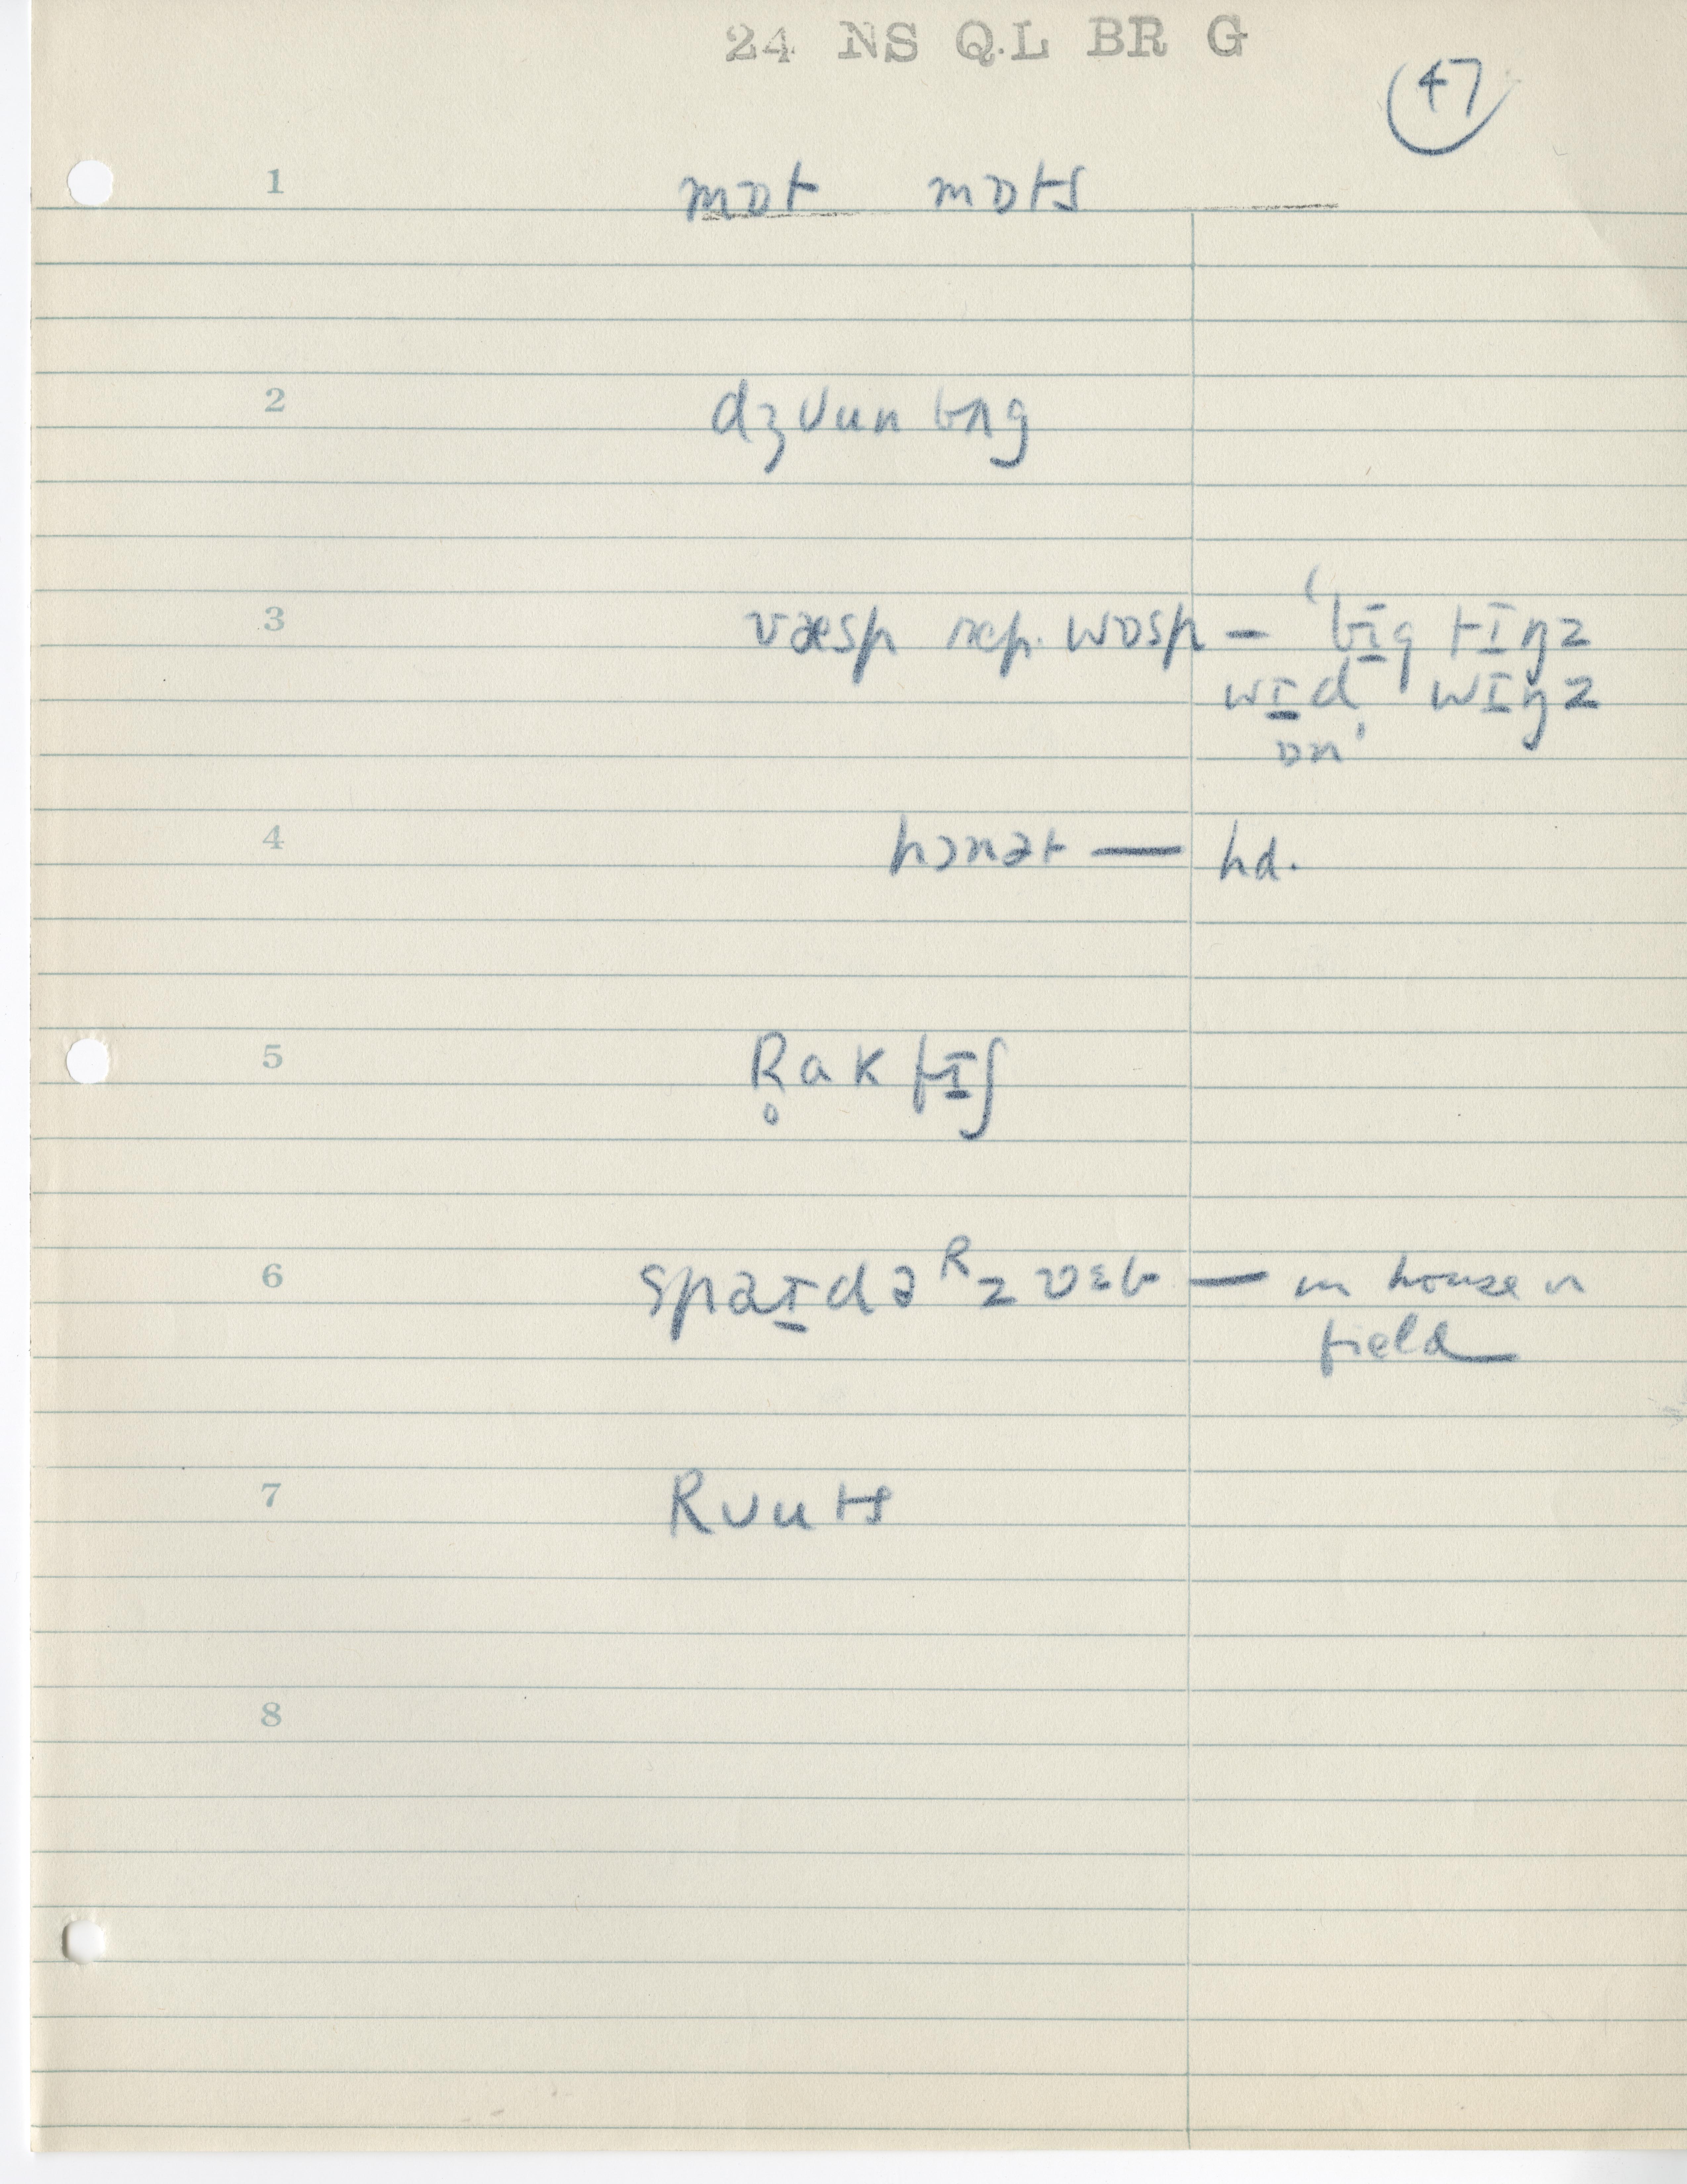 24 NS Q.L BR G
47
1 mɒt mɒts
2 dʒUun bʌg
3 væsp rep. wɒsp – 'bɪg tɪŋz
wɪd wɪŋz
ɒn'
4 hɔnət — hd.
5 R̥ak fɪʃ
6 spaɪdəᴿz vɛb — in house in
field
7 Ruuts
8